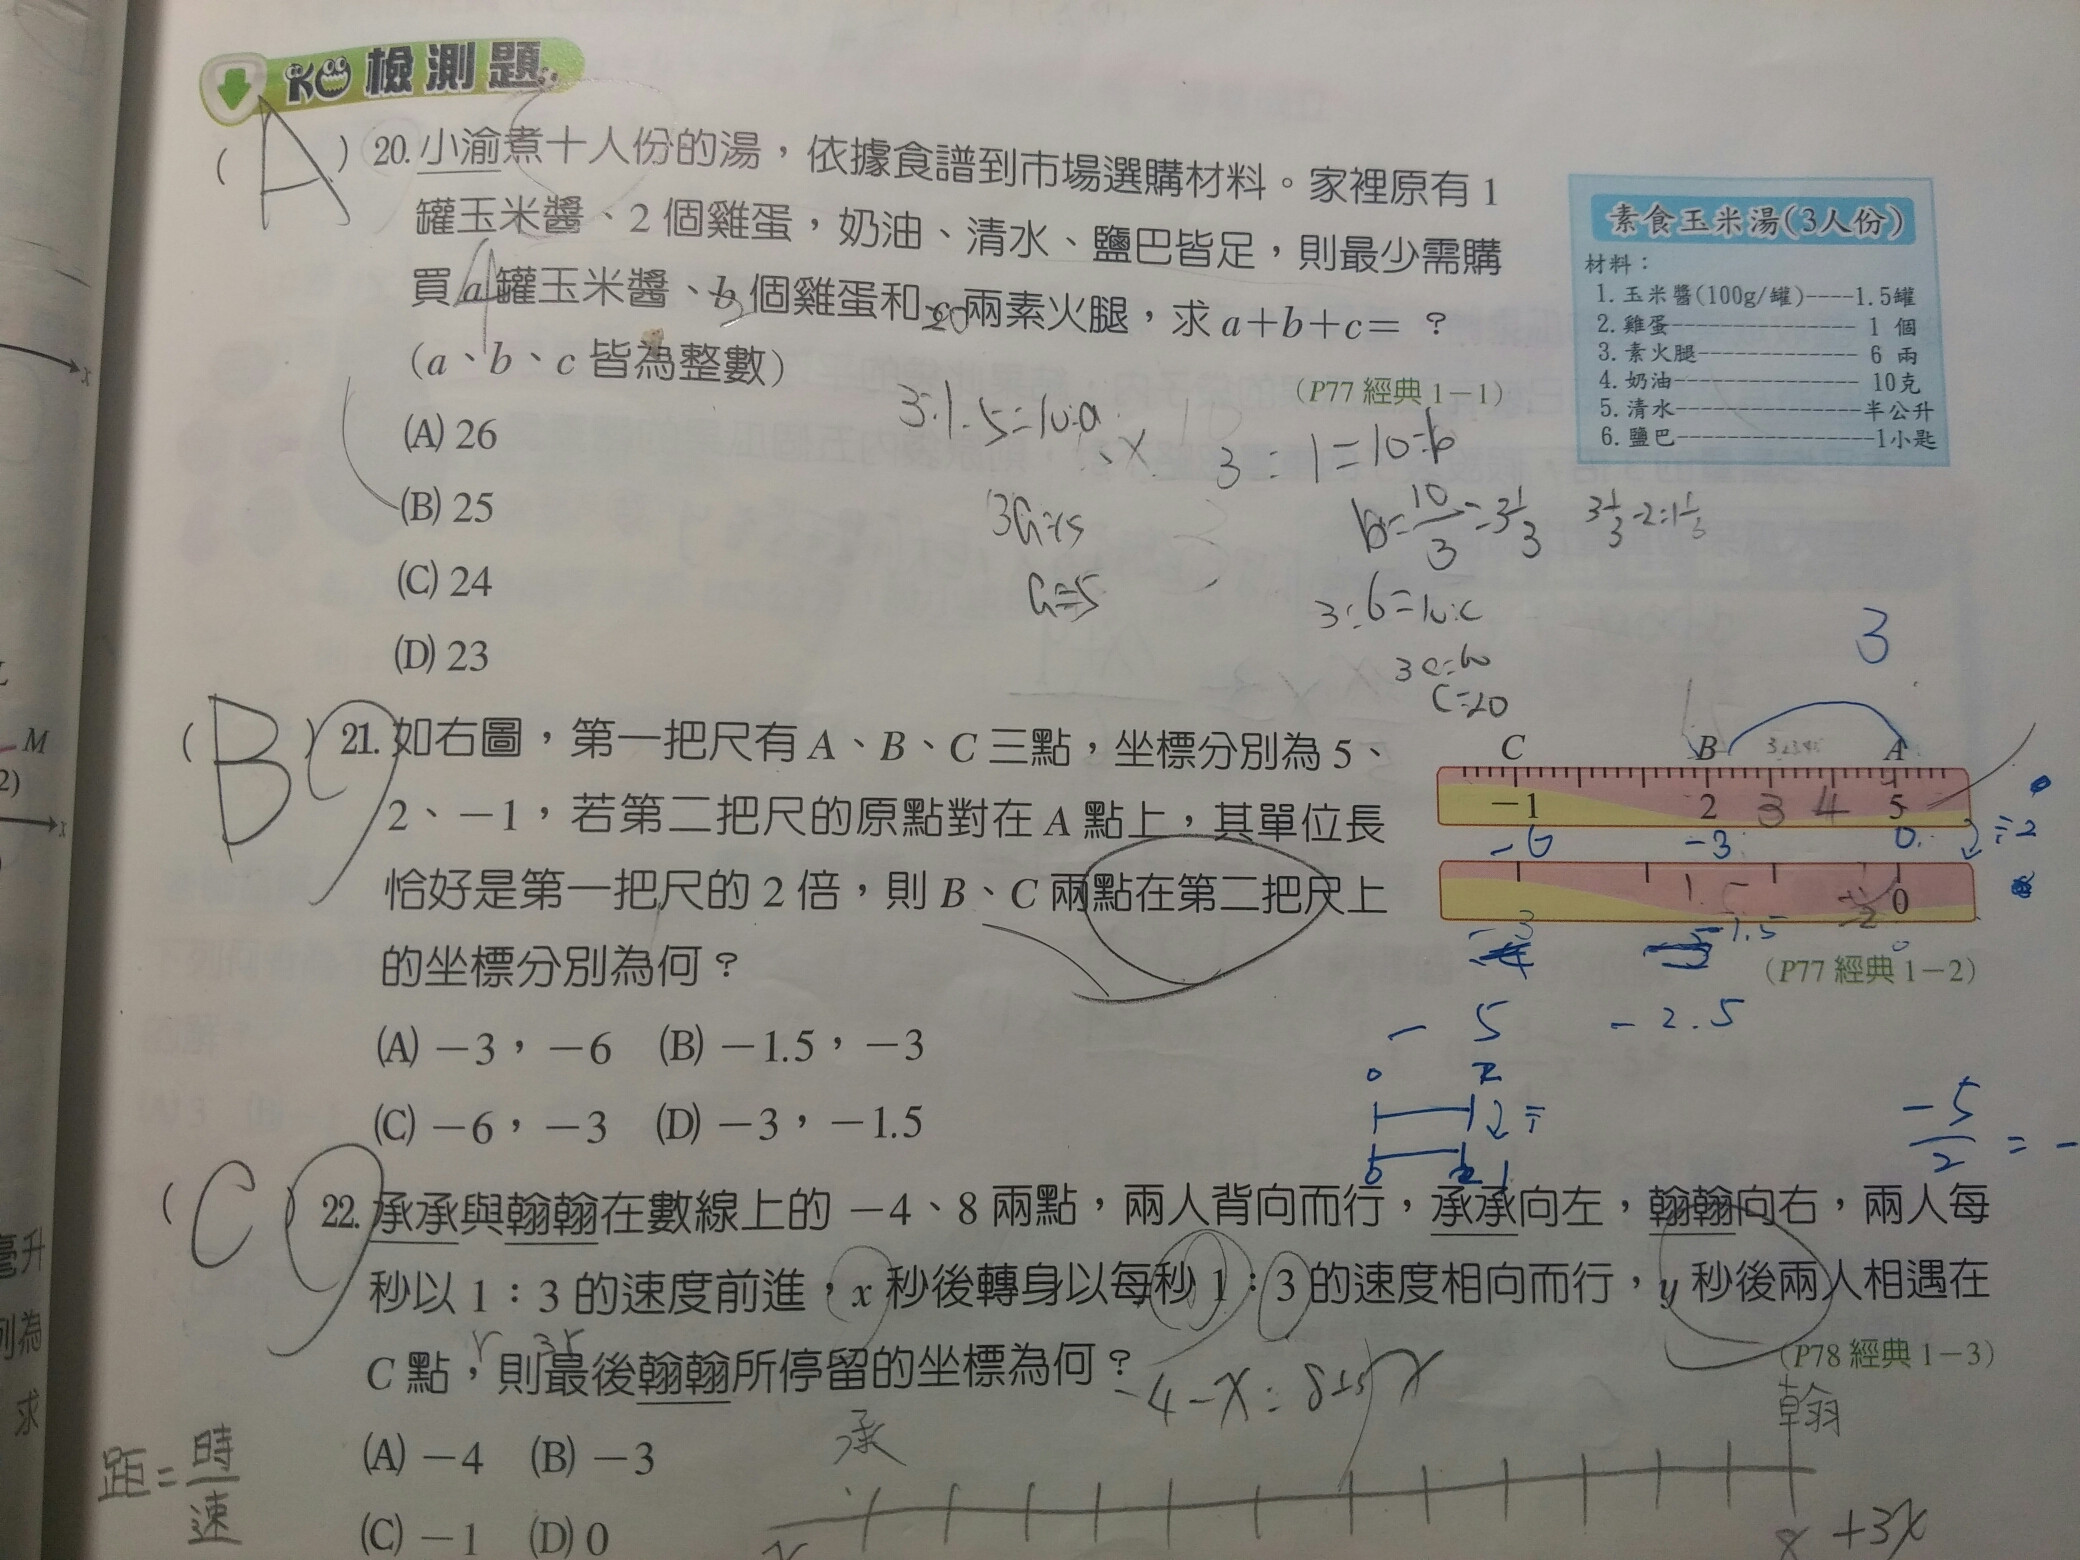 KO檢測題
(A) 20. 小渝煮十人份的湯，依據食譜到市場選購材料。家裡原有1
罐玉米醬、2個雞蛋，奶油、清水、鹽巴皆足，則最少需購
買a罐玉米醬、b個雞蛋和c兩素火腿，求a+b+c=？
(a、b、c皆為整數)
(P77 經典1-1)
素食玉米湯(3人份)
材料：
1. 玉米醬(100g/罐)----1.5罐
2. 雞蛋--------------- 1 個
3. 素火腿------------- 6 兩
4. 奶油--------------- 10克
5. 清水---------------半公升
6. 鹽巴----------------1小匙
(A) 26
(B) 25
(C) 24
(D) 23
4
3
20
3:1.5=10:a
3a=15
a=5
3:1=10:b
b=10/3=3 1/3
3 1/3-2=1 1/3
3:6=10:c
3c=60
c=20
3
(B) 21. 如右圖，第一把尺有A、B、C三點，坐標分別為5、
2、-1，若第二把尺的原點對在A點上，其單位長
恰好是第一把尺的2倍，則B、C兩點在第二把尺上
的坐標分別為何？
C B A
-1 2 3 4 5
-6 -3 0
÷2
0
-1.5
(P77 經典1-2)
-5 -2.5
(A) -3，-6 (B) -1.5，-3
(C) -6，-3 (D) -3，-1.5
-5/2 = -
(C) 22. 承承與翰翰在數線上的-4、8兩點，兩人背向而行，承承向左，翰翰向右，兩人每
秒以1：3的速度前進，x秒後轉身以每秒1：3的速度相向而行，y秒後兩人相遇在
C點，則最後翰翰所停留的坐標為何？
(P78 經典1-3)
r 3r
(A) -4 (B) -3
(C) -1 (D) 0
距=時/速
承
翰
8 +3x
M
x
毫升
列為
求